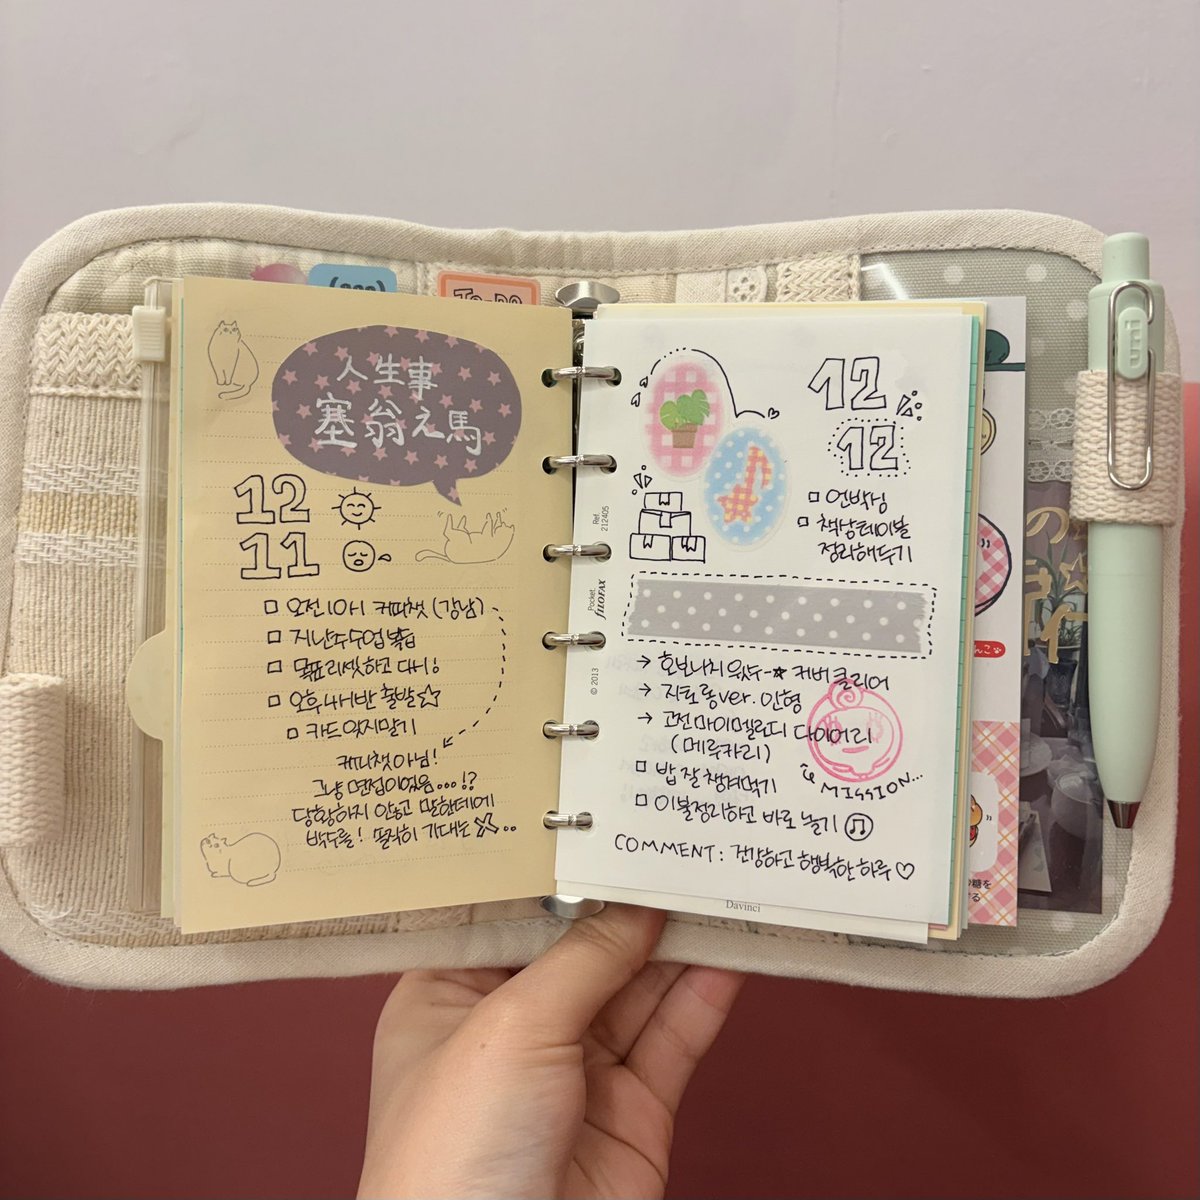 To-Do
人生事
塞翁之馬
12
11
□ 오전 10시 커피챗 (강남)
□ 지난주 수업 복습
□ 목표 리셋하고 다시!
□ 오후 4시반 출발☆
□ 카드 잊지말기
커피챗 아님!
그냥 면접이었음...!?
당황하지 않고 말한데에
박수를! 솔직히 기대는 X..
12
12
□ 언박싱
□ 책상테이블
정리해두기
Ref.
212405
Pocket
FILOFAX
© 2013
→ 호보니치 윅스-★ 커버 클리어
→ 지브통ver. 인형
→ 고전 마이멜로디 다이어리
(메루카리)
MISSION...
□ 밥 잘 챙겨먹기
□ 이불정리하고 바로 눕기
COMMENT: 건강하고 행복한 하루♡
Davinci
uni